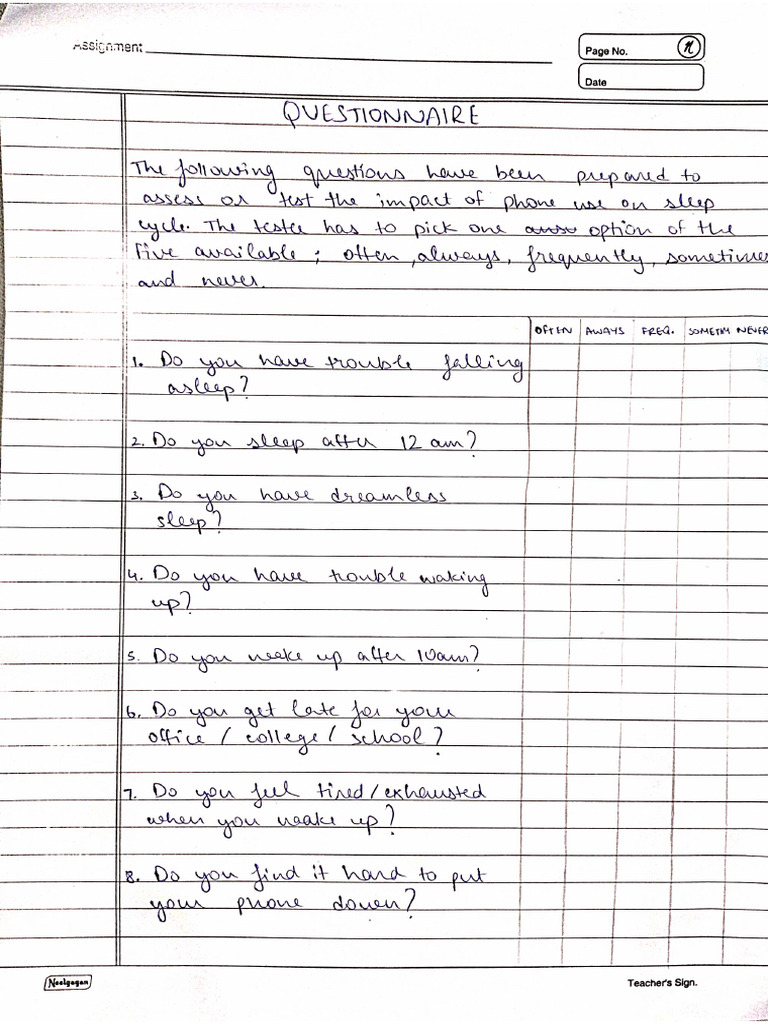 Assignment
Page No.
Date
QUESTIONNAIRE
The following questions have been prepared to
assess or test the impact of phone use on sleep
cycle. The testee has to pick one option of the
five available; often, always, frequently, sometimes
and never.
OFTEN AWAYS FREQ. SOMETIM NEVER
1. Do you have trouble falling
asleep?
2. Do you sleep after 12 am?
3. Do you have dreamless
sleep?
4. Do you have trouble waking
up?
5. Do you wake up after 10am?
6. Do you get late for your
office / college / school?
7. Do you feel tired/exhausted
when you wake up?
8. Do you find it hard to put
your phone down?
Neelgagan
Teacher's Sign.